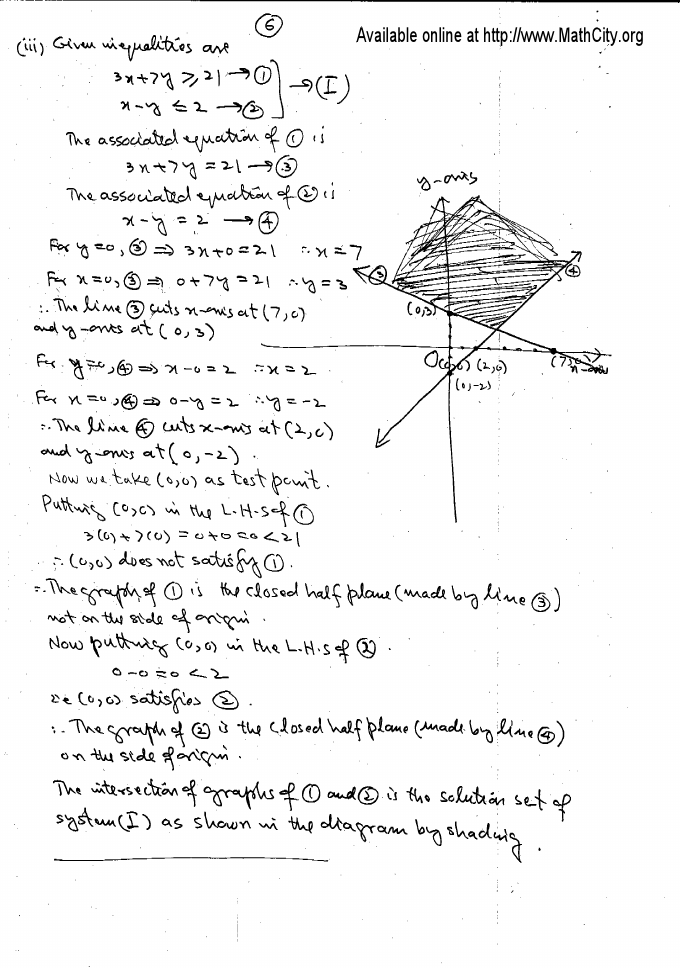 ⑥
Available online at http://www.MathCity.org
(iii) Given inequalities are
3x+7y ≥ 21 → ①
x-y ≤ 2 → ②
→ (I)
The associated equation of ① is
3x+7y = 21 → ③
The associated equation of ② is
x-y = 2 → ④
For y=0, ③ ⇒ 3x+0=21 ∴ x=7
For x=0, ③ ⇒ 0+7y=21 ∴ y=3
∴ The line ③ cuts x-axis at (7,0)
and y-axis at (0,3)
For y=0, ④ ⇒ x-0=2 ∴ x=2
For x=0, ④ ⇒ 0-y=2 ∴ y=-2
∴ The line ④ cuts x-axis at (2,0)
and y-axis at (0,-2).
Now we take (0,0) as test point.
Putting (0,0) in the L.H.S of ①
3(0)+7(0) = 0+0=0<21
∴ (0,0) does not satisfy ①.
∴ The graph of ① is the closed half plane (made by line ③)
not on the side of origin.
Now putting (0,0) in the L.H.S of ②.
0-0=0<2
ie (0,0) satisfies ②.
∴ The graph of ② is the closed half plane (made by line ④)
on the side of origin.
The intersection of graphs of ① and ② is the solution set of
system (I) as shown in the diagram by shading.
y-axis
③
④
(0,3)
O(0,0) (2,0) (7,0)
x-axis
(0,-2)